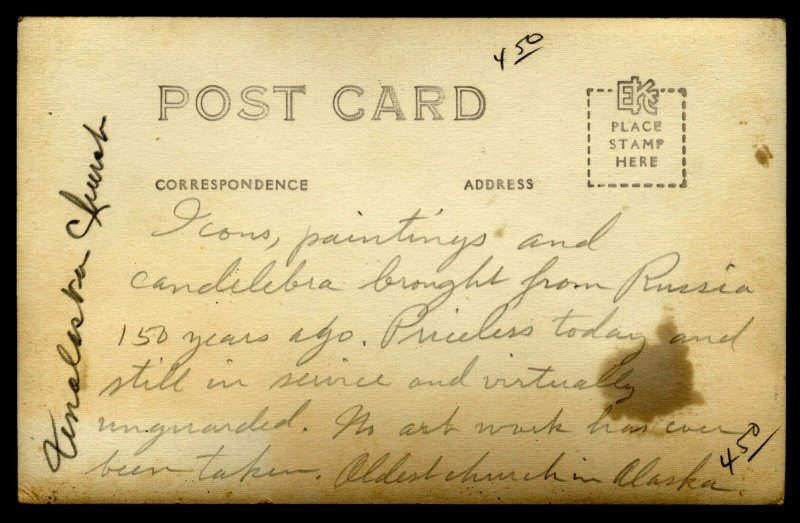 4 50
POST CARD
EKC
PLACE
STAMP
HERE
CORRESPONDENCE
ADDRESS
Unalaska Church
Icons, paintings and
candelebra brought from Russia
150 years ago. Priceless today and
still in service and virtually
unguarded. No art work has ever
been taken. Oldest church in Alaska
4 50